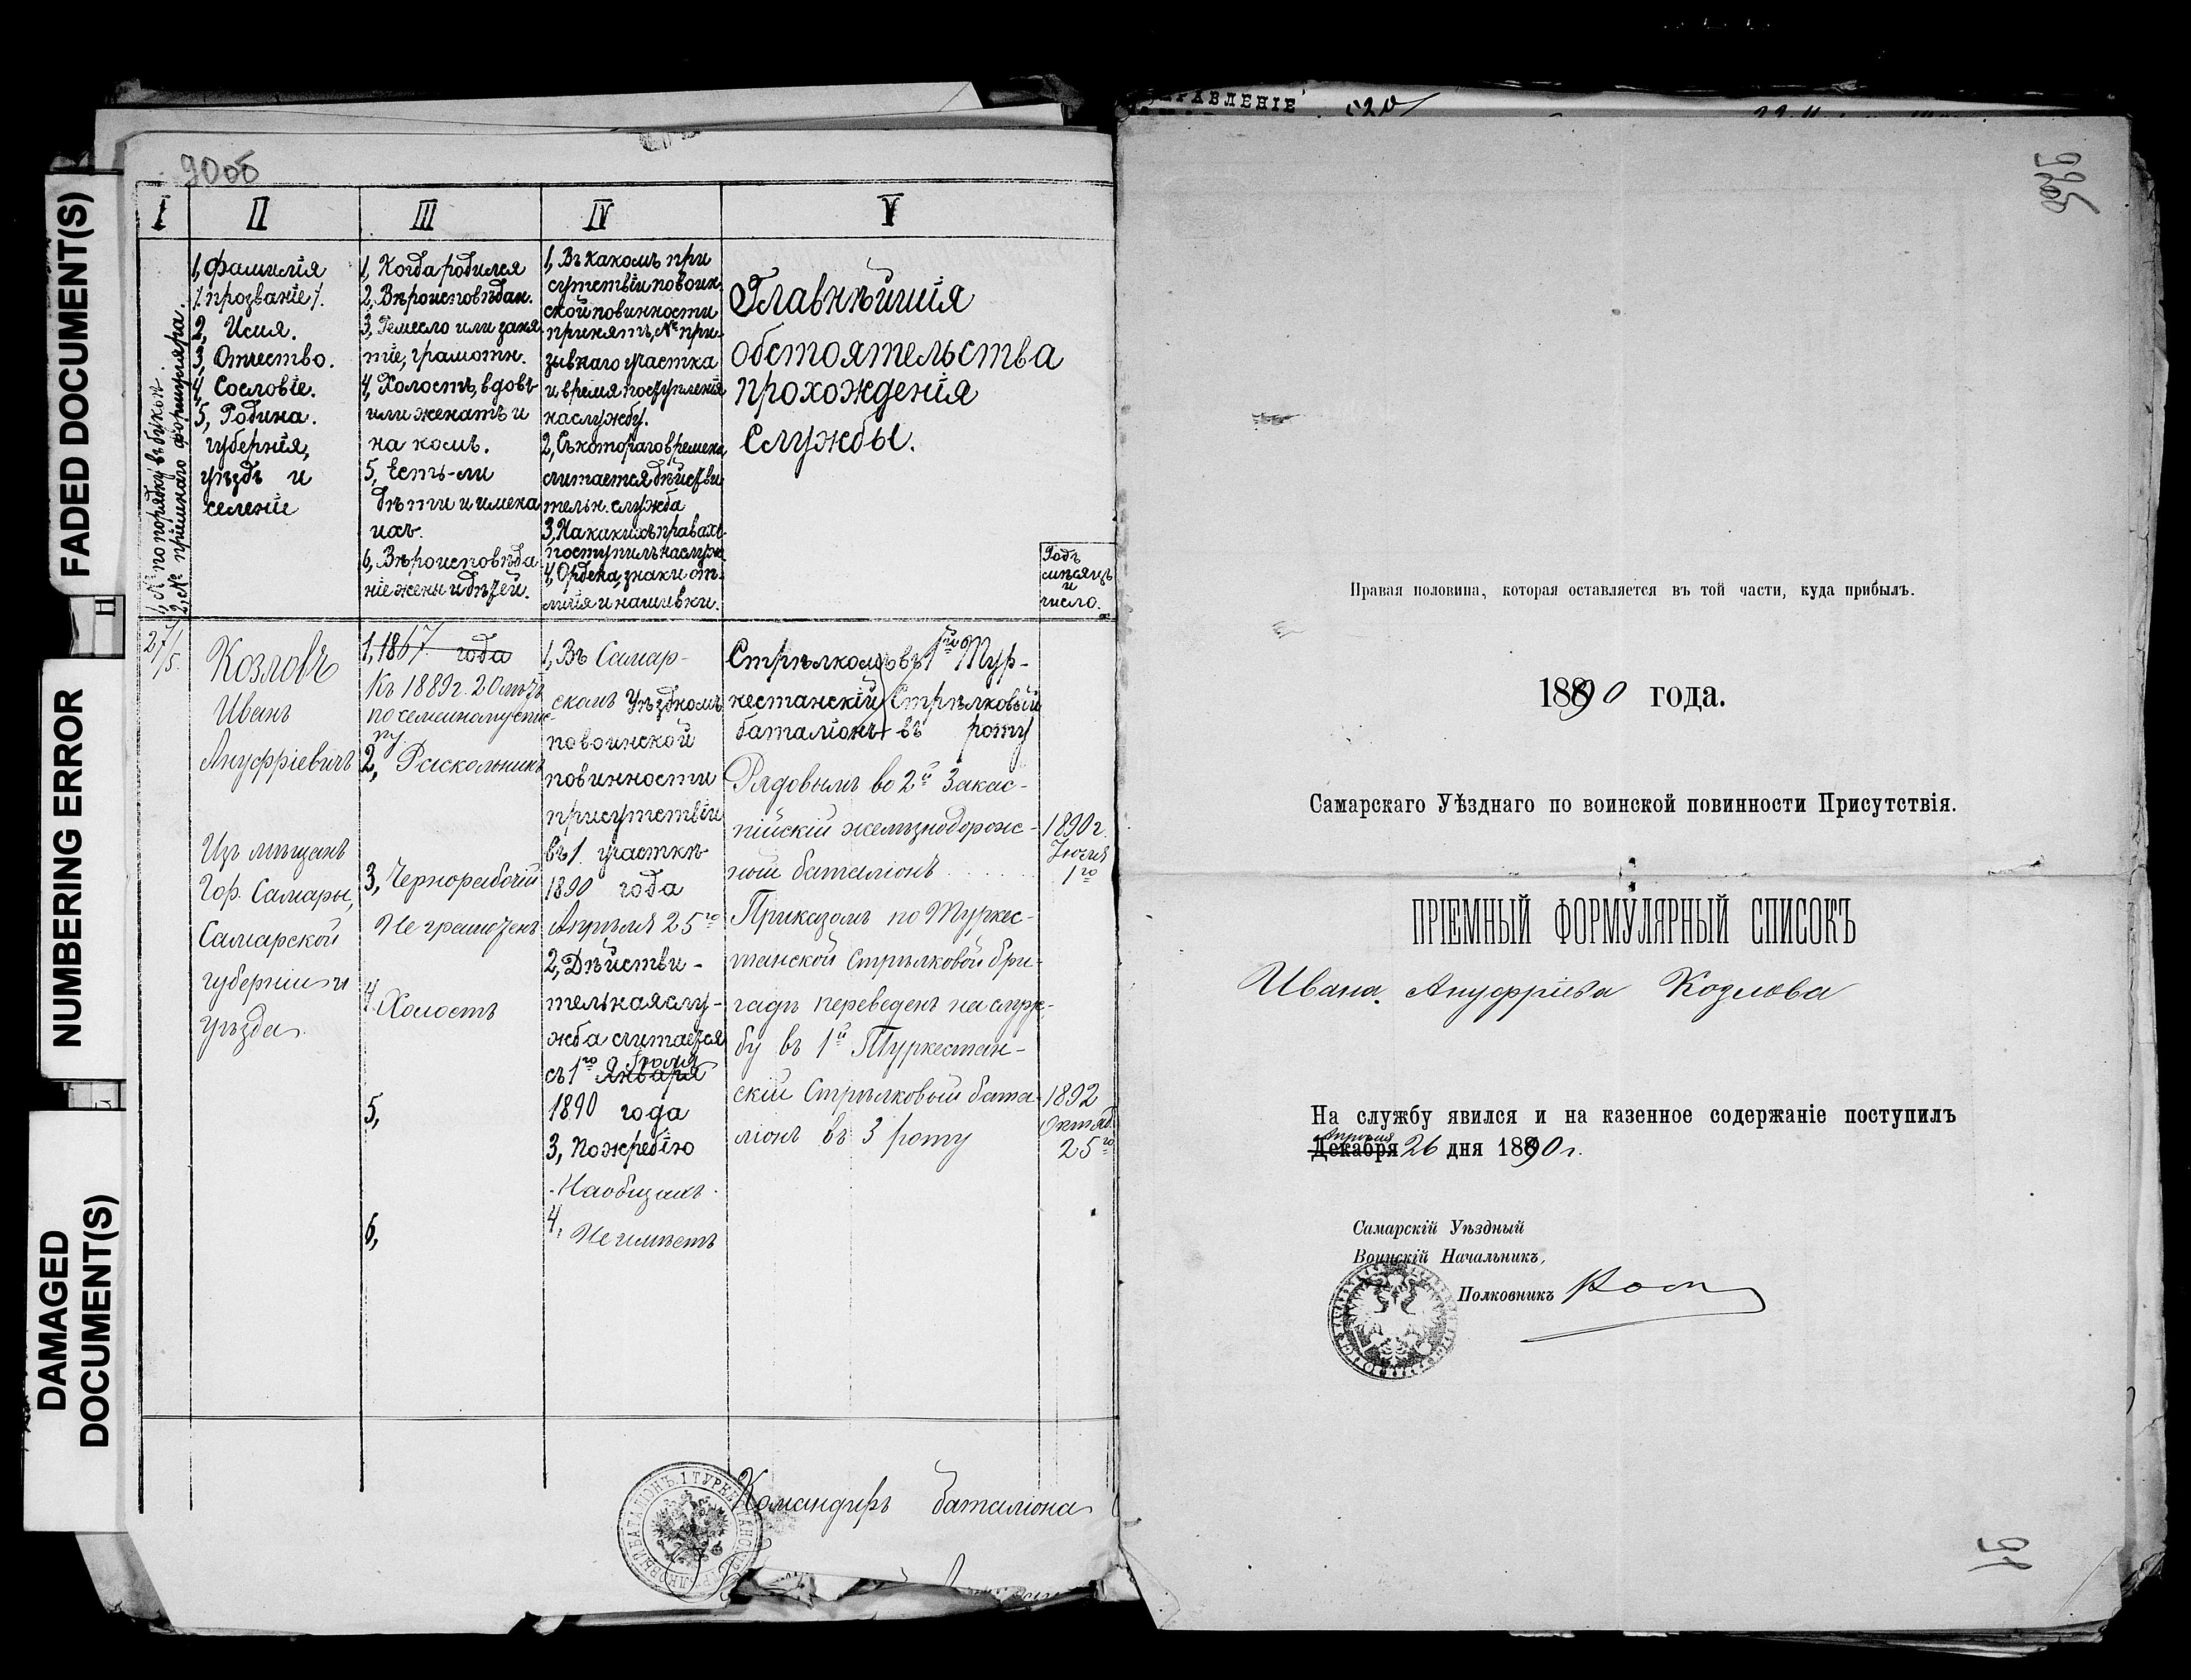 FADED DOCUMENT(S)
NUMBERING ERROR
DAMAGED
DOCUMENT(S)
90об
I
II
III
IV
V
1, № по порядку въ бук.
2, № пріемнаго формуляра.
1, Фамилія
/прозваніе/.
2, Имя.
3, Отчество.
4, Сословіе.
5, Родина.
губернія,
уѣздъ и
селеніе
1, Когда родился
2, Вѣроисповѣдан.
3, Ремесло или заня
тіе, грамотн.
4, Холостъ, вдовъ
или женатъ и
на комъ.
5, Есть-ли
дѣти и имена
ихъ.
6, Вѣроисповѣда
ніе жены и дѣтей.
1, Въ какомъ при
сутствіи по воин
ской повинности
принятъ, № при-
зывнаго участка
и время поступленія
на службу.
2, Съ котораго времени
считается дѣйстви
тельн. служба
3, На какихъ правахъ
поступилъ на служ.
4, Ордена, знаки от-
личія и нашивки.
Главнѣйшія
обстоятельства
прохожденія
службы.
Годъ
мѣсяцъ
и
число.
27/5.
Козловъ
Иванъ
Ануфріевичъ
Изъ мѣщанъ
Гор. Самары,
Самарской
губерніи и
уѣзда
1, 1867. года
Къ 1889 г. 20 лѣтъ
по семейному спис-
ку
2, Раскольникъ
3, Чернорабочій
Не грамотенъ
4, Холостъ
5,
6,
1, Въ Самар-
скомъ Уѣздномъ
по воинской
повинности
присутствіи
въ 1 участкѣ
1890 года
Апрѣля 25го
2, Дѣйстви-
тельная слу-
жба считается
Іюля
съ 1го Января
1890 года
3, По жребію
На общихъ
4, Не имѣетъ
Стрѣлкомъ въ 1ю Тур-
кестанскій Стрѣлковый
баталіонъ въ роту
Рядовымъ во 2й Закас-
пійскій желѣзнодорож-
ный баталіонъ . . . . .
1890 г.
Іюля
1го
Приказомъ по Туркес-
танской Стрѣлковой бри-
гадѣ переведенъ на служ-
бу въ 1й Туркестан-
скій Стрѣлковый бата-
ліонъ въ 3 роту
1892
Октяб.
25го
Командиръ баталіона
БАТАЛІОНЪ. 1 ТУРКЕСТАНСКІЙ СТРѢЛКОВЫЙ
РАВЛЕНІЕ
520
Правая половина, которая оставляется въ той части, куда прибылъ.
1890 года.
Самарскаго Уѣзднаго по воинской повинности Присутствія.
ПРІЕМНЫЙ ФОРМУЛЯРНЫЙ СПИСОКЪ
Ивана Ануфріева Козлова
На службу явился и на казенное содержаніе поступилъ
Апрѣля
Декабря 26 дня 1890 г.
Самарскій Уѣздный
Воинскій Начальникъ,
Полковникъ
91